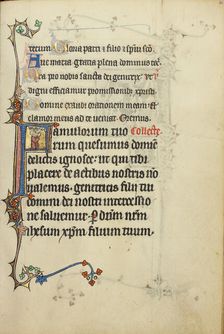 tecum Gloria patri & filio & spui sco.
Aue maria gratia plena dominus tecu
Ora pro nobis sancta dei genetrix ut
digni efficiamur promissionibus xpristi
Domine exaudi orationem meam Et
clamor meus ad te veniat Oremus
Famulorum tuo Collecte
rum quesumus domine
delictis ignosce ut qui tibi
placere de actibus nostris no
ualemus genetricis filij tui
domini dei nostri intercessio
ne saluemur P dnm nrm
ihesum xpm filium tuum